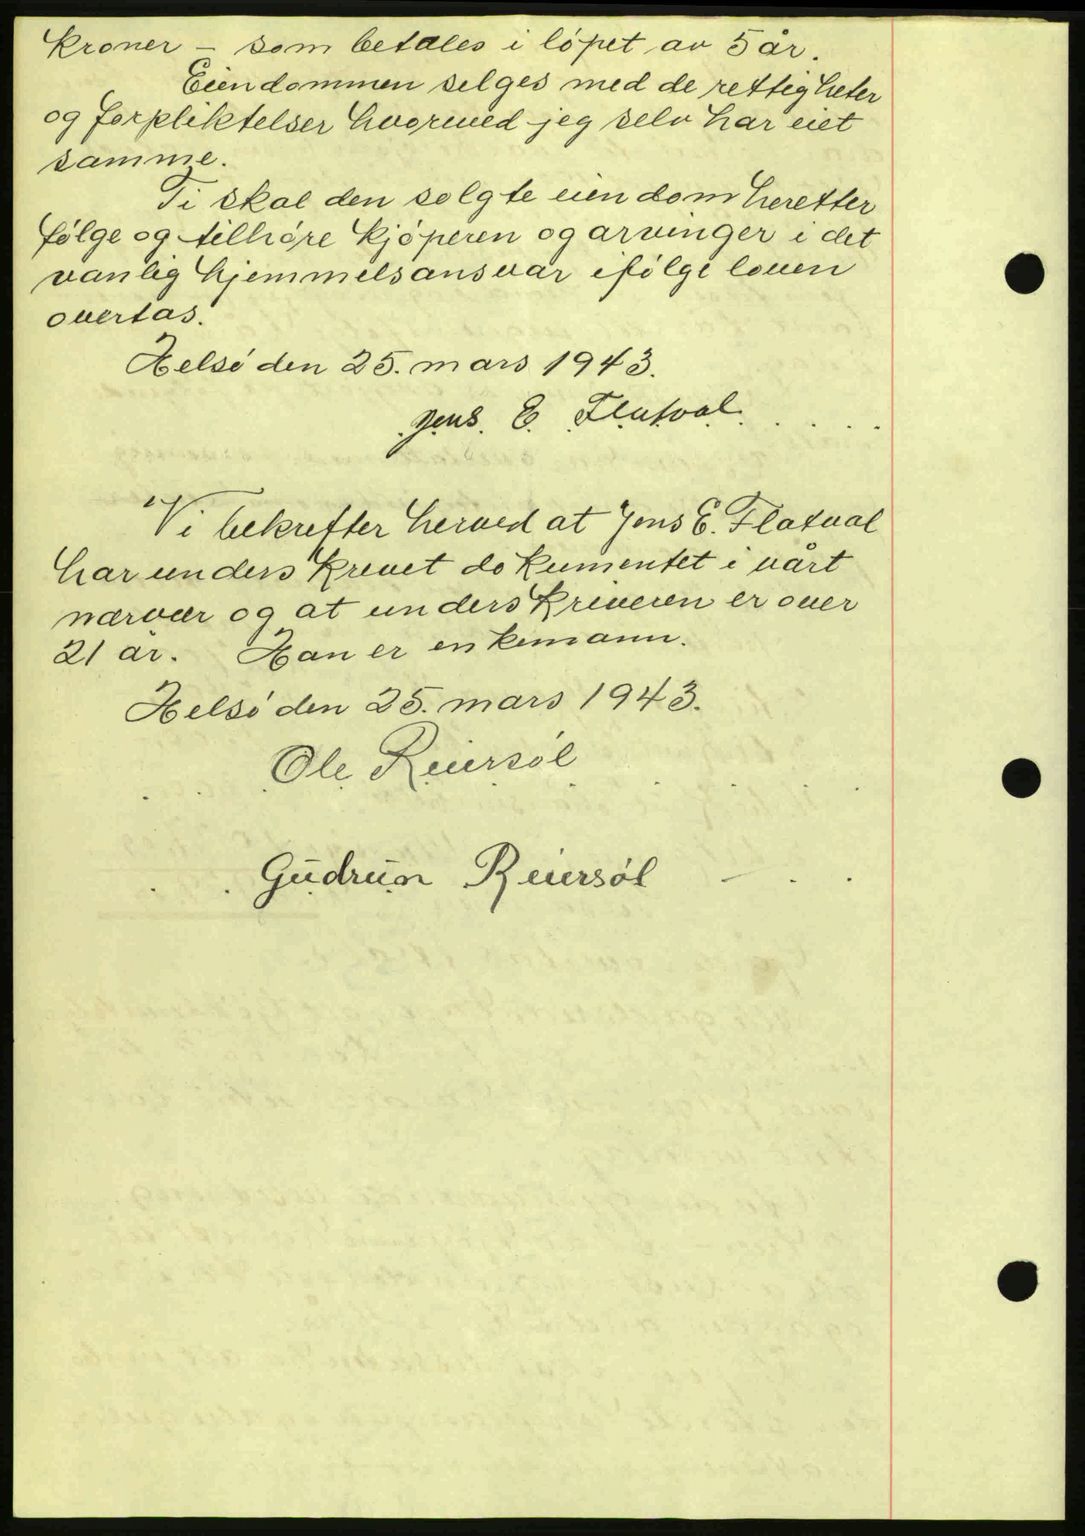 kroner – som betales i löpet av 5 år.
Eiendommen selges med de rettigheter
og forpliktelser hvormed jeg selv har eiet
samme.
Ti skal den solgte eiendom heretter
fölge og tilhöre kjöperen og arvinger i det
vanlig hjemmelsansvar ifölge loven
overtas.
Helsö den 25. mars 1943.
Jens E. Flatval
Vi bekrefter herved at Jens E. Flatval
har underskrevet dokumentet i vårt
nærvær og at underskriveren er over
21 år. Han er enkemann.
Helsö den 25. mars 1943.
Ole Reiersöl
Gudrun Reiersöl